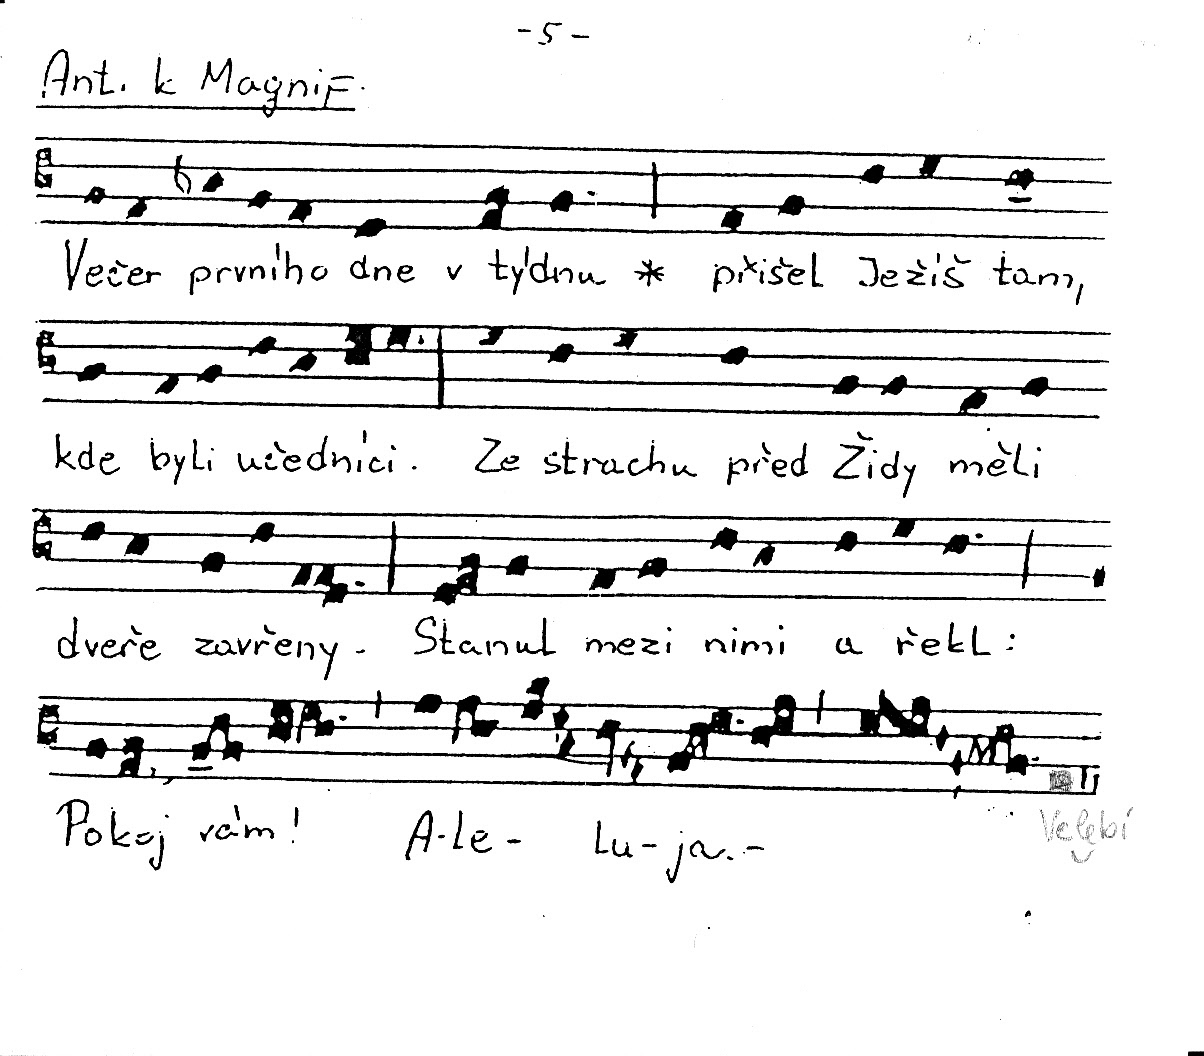 - 5 -
Ant. k Magnif.
Večer prvního dne v týdnu * přišel Ježíš tam,
kde byli učedníci. Ze strachu před Židy měli
dveře zavřeny. Stanul mezi nimi a řekl:
Pokoj vám! A-le- lu-ja.-
Velebí